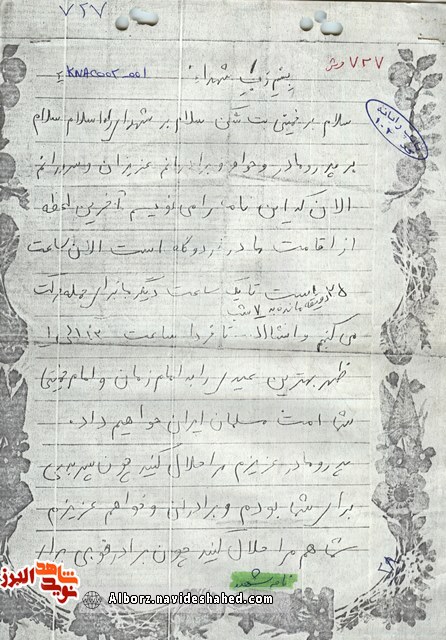 ۷۲۷
۷۲۷
KNA۵۰۰۲_۰۰۱
بنیم رب شهداء
سلام بر خمینی بت شکن سلام بر شهدای راه اسلام سلام
بر پدر و مادر و خواهر و برادرانم عزیزان و سرورانم
الان که این نامه را می نویسم آخرین لحظه
از اقامت ما در اردوگاه است الان ساعت
۲۵ دقیقه مانده به ۷ شب
است تا یک ساعت دیگر ما برای حمله حرکت
می کنیم و انشاالله تا فردا ساعت
ظهر بهترین عیدی را به امام زمان و امام خمینی
شما امت مسلمان ایران خواهیم داد.
پدر و مادر عزیزم مرا حلال کنید چون پسر بدی
برای شما بودم و برادران و خواهر عزیزم
شما هم مرا حلال کنید چون برادر خوبی برای
نوید شاهد البرز
Alborz.navideshahed.com